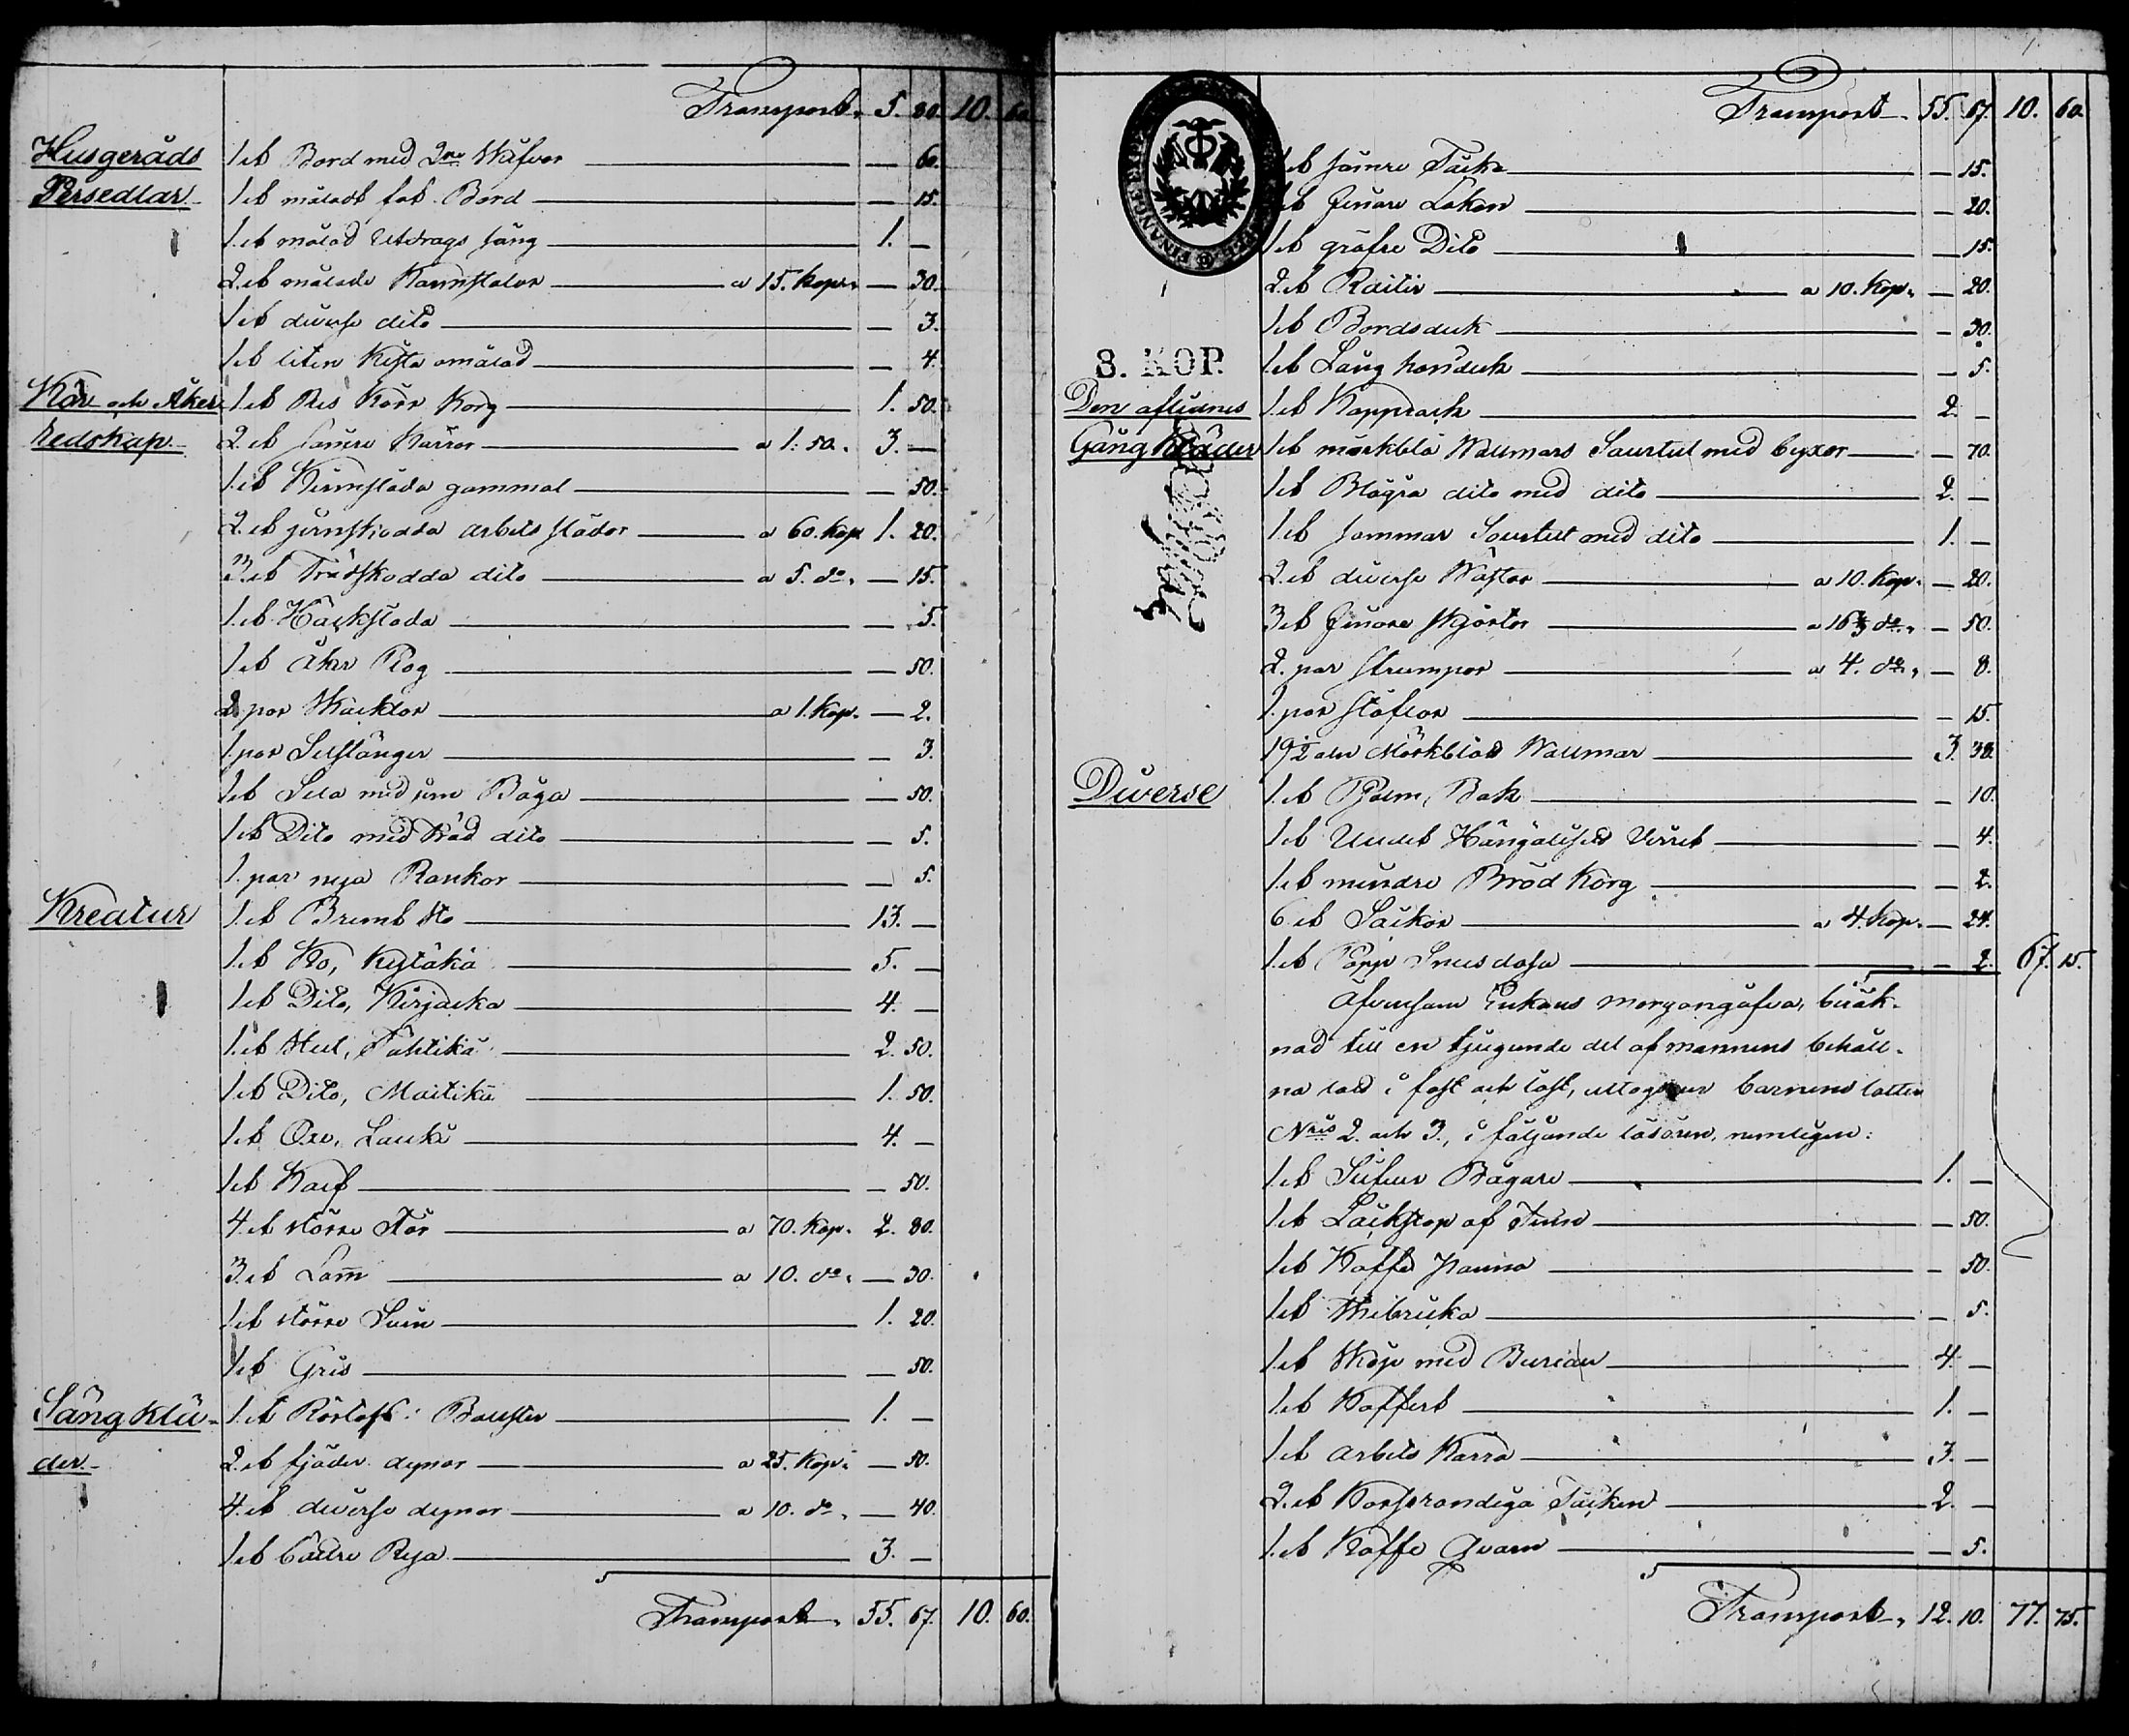 Transport. 5. 80. 10. 60.
Husgeråds 1 st Bord med 2ne Skifvor — 60.
Persedlar. 1 st måladt fat Bord — 15.
1. st målad Utdrags säng 1. —
2. st målade Karmstolar a 15. Kop. — 30.
1 st diverse dito — 3.
1 st liten Kista omålad — 4.
Kör och Åker 1 st Ris Körr Korg 1. 50.
redskap. 2. st sämre Kärror a 1. 50. 3. —
1. st Kirmsläda gammal — 50.
2. st jernskodda arbets slädor a 60. Kop. 1. 20.
3. st Trädskodda dito a 5. do. — 15.
1. st Häcksläda — 5.
1 st Åker Plog — 50.
2. par Skacklor a 1. Kop. — 2.
1 par Selstänger — 3.
1 st Sela med jern Båga — 50.
1 st Dito med träd dito — 5.
1. par nya Rankor — 5.
Kreatur 1. st Brunt Sto 13. —
1. st Ko, Kystäkä 5. —
1 st Dito, Kirjacka 4. —
1. st Stut, Tähtikä 2. 50.
1 st Dito, Maitikä 1. 50.
1 st Oxe, Lauki 4. —
1 st Kalf — 50.
4. st större Får a 70. Kop. 2. 80.
3. st Lam̄ a 10. do. — 30.
1 st större Svin 1. 20.
1 st Gris — 50.
Säng Klä- 1. st Bolster 1. —
der. 2. st fjäder dynor a 25. Kop. — 50.
4. st diverse dynor a 10. do. — 40.
1 st bättre Rya 3. —
Transport. 55. 67. 10. 60.
Transport. 55. 67. 10. 60.
1 st sämre Täcke — 15.
1 st finare Lakan — 20.
1 st gröfre Dito — 15.
2. st Raitir a 10. Kop. — 20.
1 st Bordsduk — 30.
8. KOP. 1 st Lång handuk — 5.
Den aflidnes 1 st Kapprock 2. —
Gång Kläder 1 st mörkblå Wallmars Saurtut med byxor — 70.
1 st Blågrå dito med dito 2. —
1 st sommar Saurtut med dito 1. —
2. st diverse Wästar a 10. Kop. — 20.
3 st finare Skjortor a 16 2/3 do. — 50.
2. par strumpor a 4. do. — 8.
1. par stöflor — 15.
19½ aln Mörkblå Wallmar 3. 38.
Diverse 1. st Psalm Bok — 10.
1 st Uselt — 4.
1. st mindre Bröd Korg — 2.
6 st Säckar a 4. Kop. — 24.
1. st Papp Snusdosa — 2. 67. 15.
Äfvensom Enkans morgongåfva, beräk-
nad till en tjugonde del af mannens behåll-
na bo i fast och löst, uttages ur barnens lotter
Nris 2. och 3., i följande lösören, nemligen:
1. st Silfver Bägare 1. —
1 st Läckstop af Tenn — 50.
1 st Kaffe panna — 50.
1 st Thebricka — 5.
1. st Skåp med Bureau 4. —
1. st Koffert 1. —
1 st arbets Kärra 3. —
2. st Korsrandiga Täcken 2. —
1. st Kaffe Qvarn — 5.
Transport. 12. 10. 77. 75.